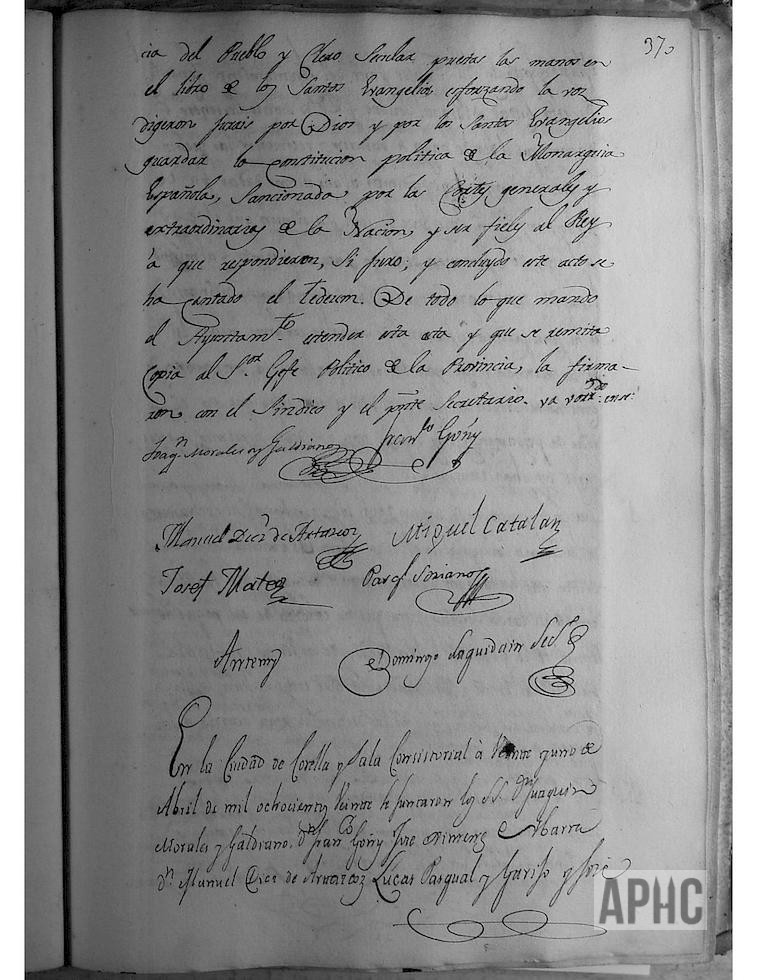 37
cia del Pueblo y Clero Secular puestas las manos en
el libro de los Santos Evangelios esforzando la voz
digeron Jurais por Dios y por los Santos Evangelios
guardar la constitucion politica de la Monarquia
Española, sancionada por las Cortes generales y
extraordinarias de la Nacion, y ser fieles al Rey
a que respondieron, Si Juro; y concluydo este acto se
ha cantado el Tedeum. De todo lo que mando
el Ayuntamto. estender esta acta y que se remita
Copia al Sor. Gefe Politico de la Provincia, la firma-
ron con el Sindico y el Secretario. va
Joaqn. Morales y Galdiano Francco Goñy
Manuel Diez de Artazcoz Miguel Catalan
Josef Mateo Pasql Soriano
Antemy Domingo Laquidain Secº
En la Ciudad de Corella y Sala Consistorial à Veinte y uno de
Abril de mil ochocientos Veinte se juntaron los SS. Dn Juaquin
Morales y Galdiano, dn franco Goñy Jose Ximenez e Ybarra
dn. Manuel Diez de Artazcoz Lucas Pasqual y Garijo y José
APHC